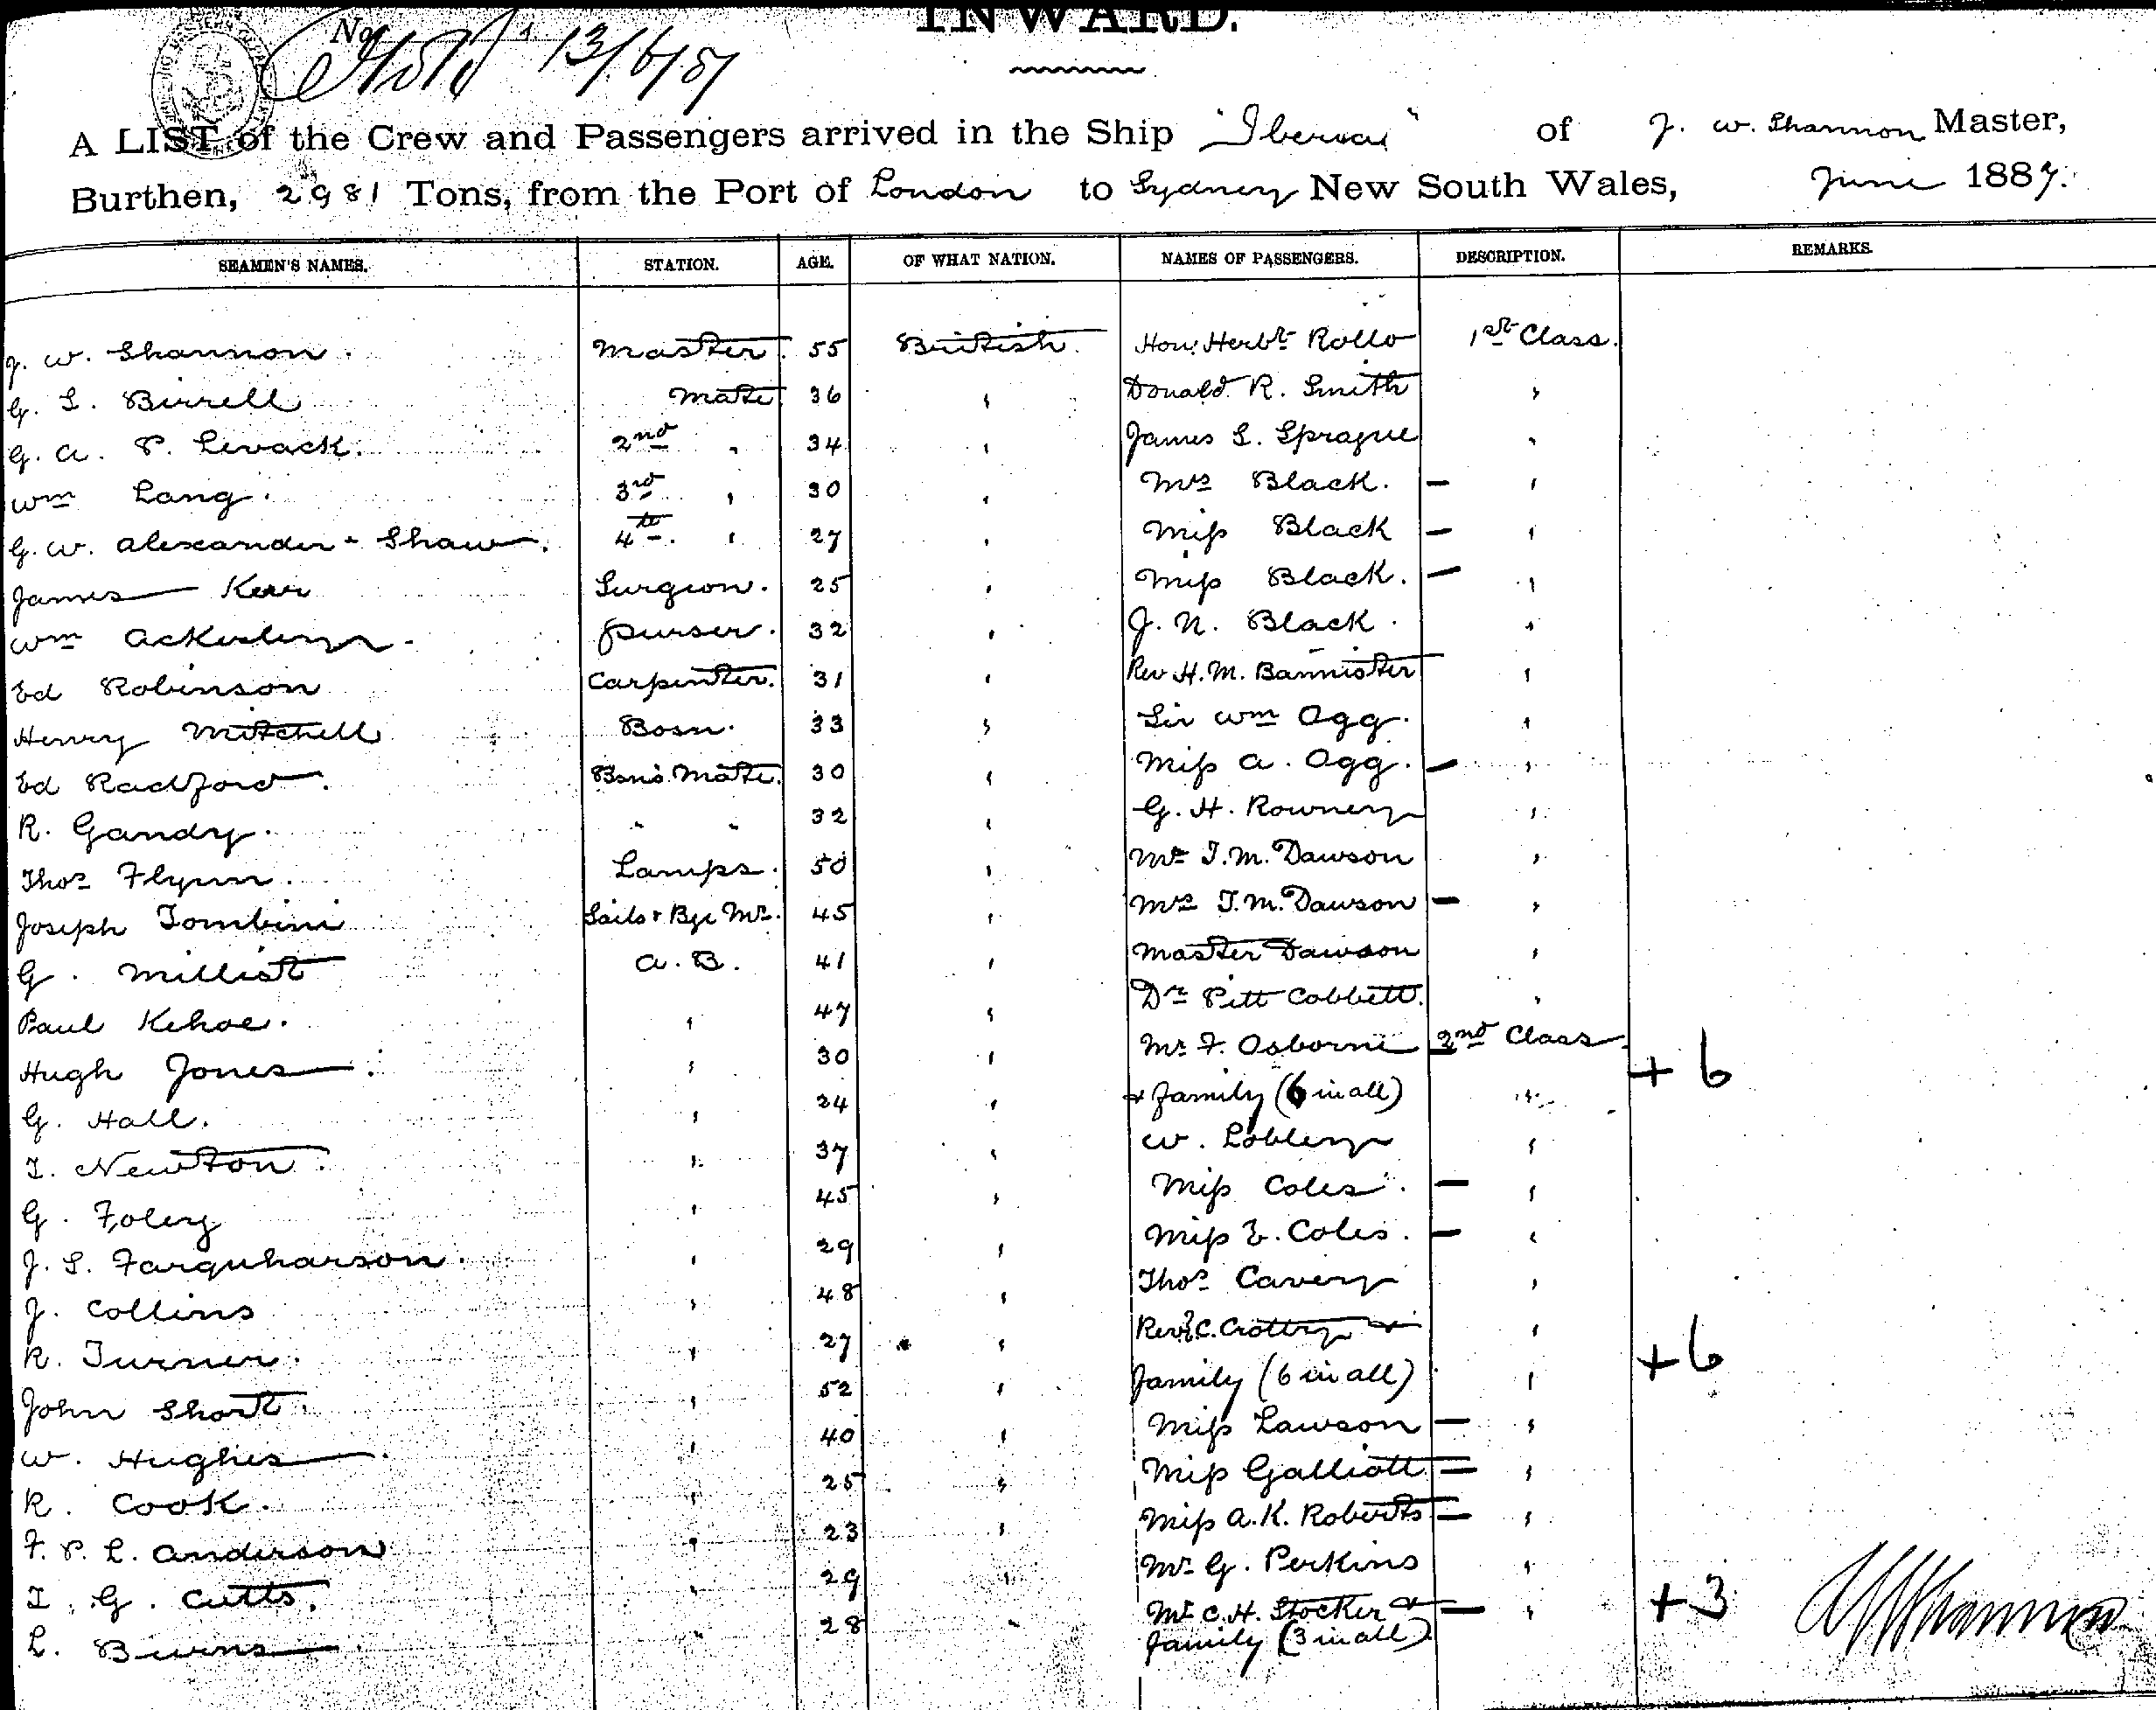 INWARD.
No. 13/6/87
A LIST of the Crew and Passengers arrived in the Ship "Iberia" of J. W. Shannon Master,
Burthen, 2981 Tons, from the Port of London to Sydney New South Wales, June 1887.
SEAMEN'S NAMES. STATION. AGE. OF WHAT NATION. NAMES OF PASSENGERS. DESCRIPTION. REMARKS.
J. W. Shannon. Master. 55 British. Hon. Herbt Rollo 1st Class.
G. S. Birrell Mate 36 " Donald R. Smith "
G. A. P. Levack. 2nd " 34 " James S. Sprague "
Wm Lang. 3rd " 30 " Mrs Black. — "
G. W. Alexander - Shaw. 4th " 27 " Miss Black — "
James Kerr Surgeon. 25 " Miss Black. — "
Wm Ackerley. Purser. 32 " J. N. Black. "
Ed Robinson Carpenter. 31 " Rev H. M. Bannister "
Henry Mitchell Bosn. 33 " Sir Wm Ogg. "
Ed Radford. Bsn's Mate. 30 " Miss A. Ogg. — "
R. Gandy. " " 32 " G. H. Rowney "
Thos Flynn. Lamps. 50 " Mr T. M. Dawson "
Joseph Tombini Sails & Bge Mr. 45 " Mrs T. M. Dawson — "
G. Millist A. B. 41 " Master Dawson "
Paul Kehoe. " 47 " Dr Pitt Cobbett. "
Hugh Jones. " 30 " Mr F. Osborne 2nd Class. + 6
G. Hall. " 24 " & family (6 in all) "
T. Newton. " 37 " W. Lobley "
G. Foley " 45 " Miss Coles. — "
J. S. Farquharson. " 29 " Miss E. Coles. — "
J. Collins " 48 " Thos Cavey "
R. Turner. " 27 " Rev C. Crotty & "
John Short. " 52 " family (6 in all) " + 6
W. Hughes. " 40 " Miss Lawson — "
R. Cook. " 25 " Miss Galliott — "
F. P. L. Anderson " 23 " Miss A. K. Roberts — "
T. G. Cutts. " 29 " Mr G. Perkins "
L. Burns " 28 " Mr C. H. Stocker & — " + 3 Shannon
family (3 in all)